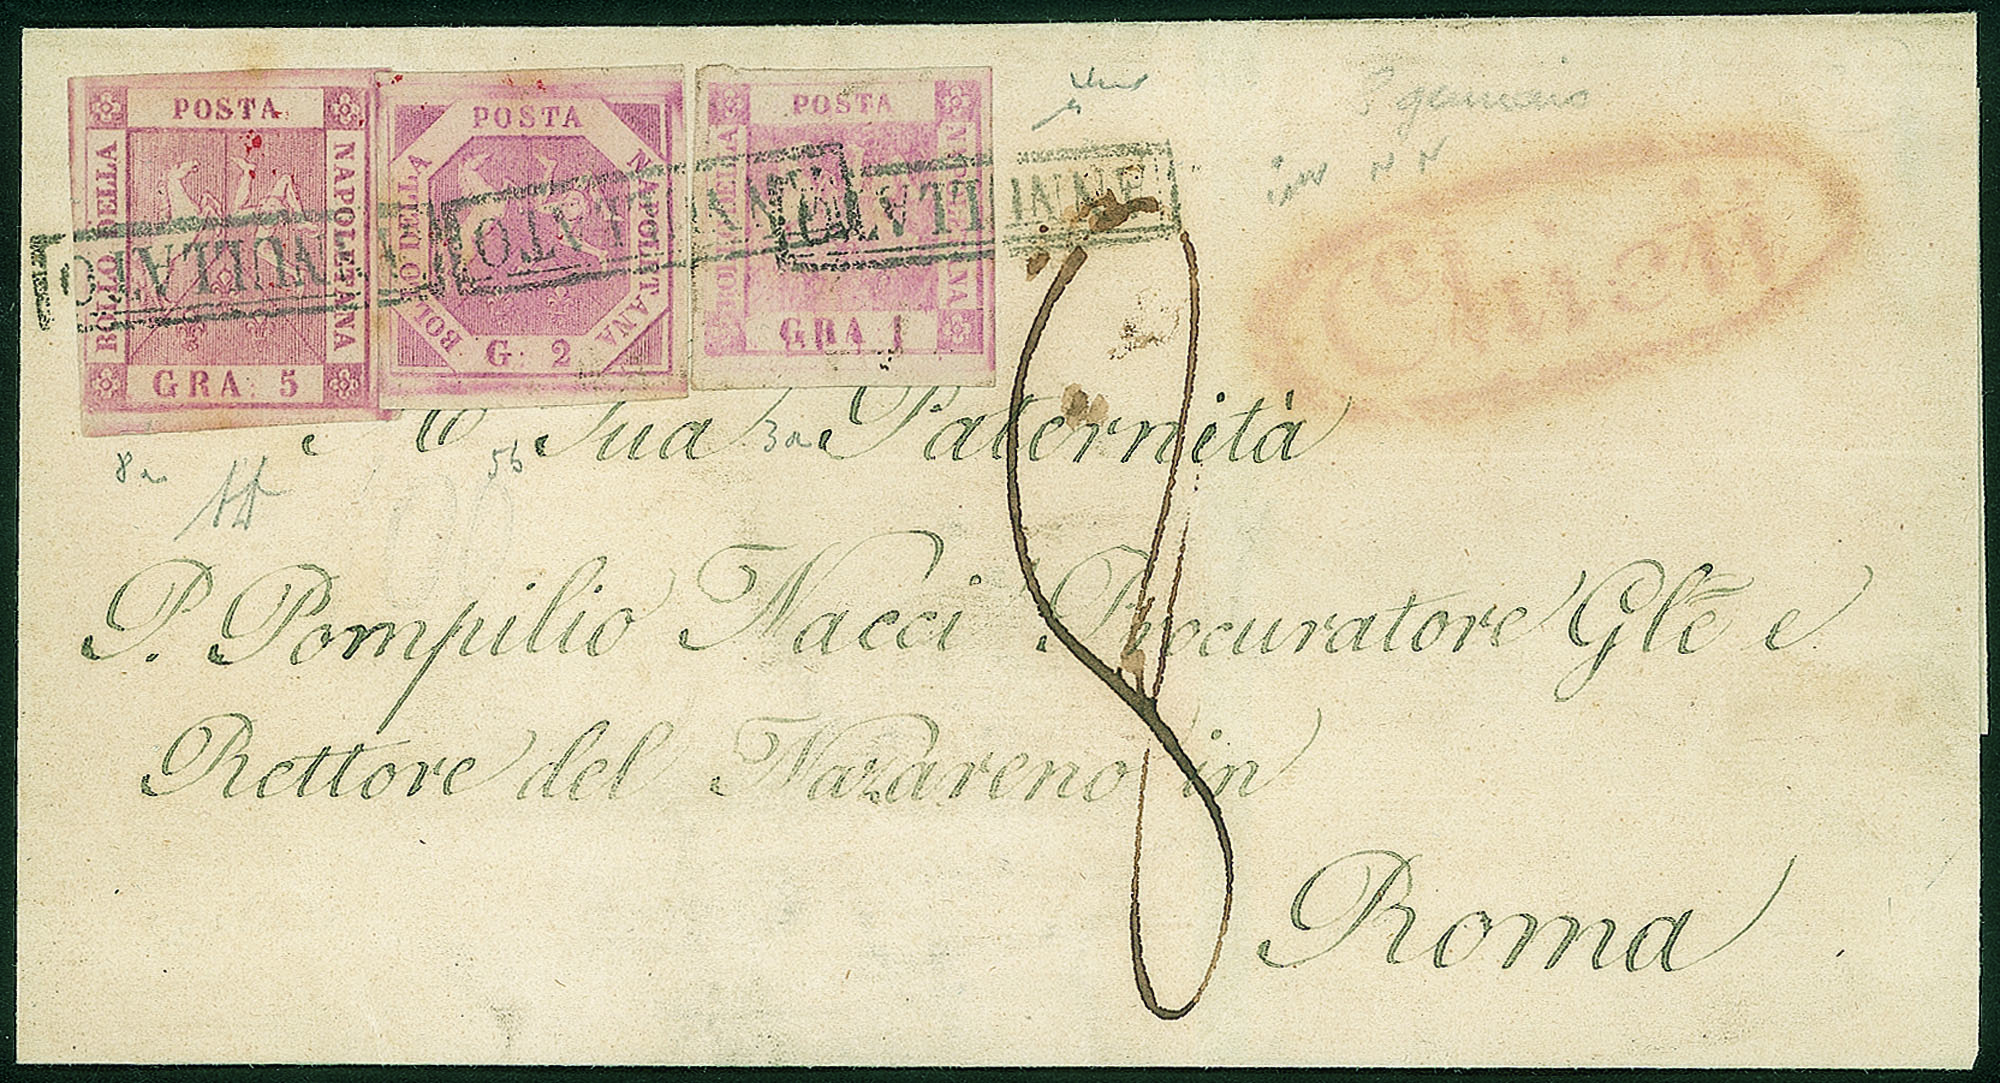 POSTA
BOLLO DELLA
NAPOLETANA
GRA. 5
POSTA
BOLLO DELLA
NAPOLETANA
G. 2
POSTA
BOLLO DELLA
NAPOLETANA
GRA 1
ANNULLATO
ANNULLATO
ANNULLATO
Chieti
8
A Sua Paternità
P. Pompilio Nacci Procuratore Glē e
Rettore del Nazareno in
Roma
8a
5b
3a